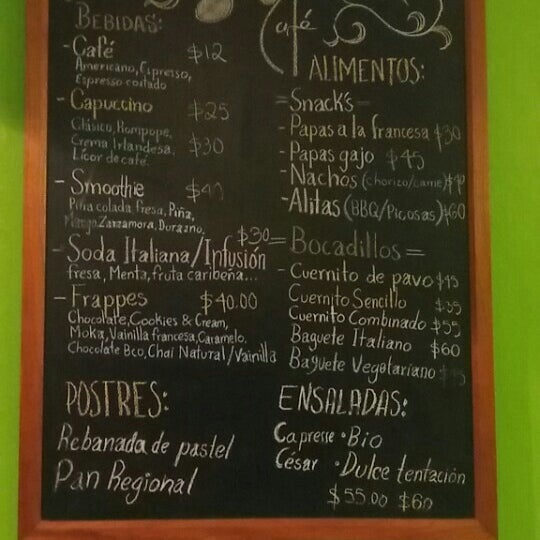 café
BEBIDAS:
- Café $12
Americano, Espresso,
Espresso cortado
- Capuccino $25
Clásico, Rompope, $30
Crema Irlandesa,
Licor de café.
- Smoothie
Piña colada, fresa, Piña,
Mango, Zarzamora, Durazno,
$30
- Soda Italiana/Infusión
fresa, Menta, fruta caribeña...
- Frappes $40.00
Chocolate, Cookies & Cream,
Moka, Vainilla francesa, Caramelo.
Chocolate Bco, Chai Natural/Vainilla
POSTRES:
Rebanada de pastel
Pan Regional
ALIMENTOS:
= Snack's =
- Papas a la francesa $30
- Papas gajo $45
- Nachos (chorizo/carne)
- Alitas (BBQ/Picosas) $60
= Bocadillos =
- Cuernito de pavo $45
Cuernito Sencillo $35
Cuernito Combinado $55
Baguete Italiano $60
Baguete Vegatariano
ENSALADAS:
Capresse · Bio
César · Dulce tentación
$55.00 $60